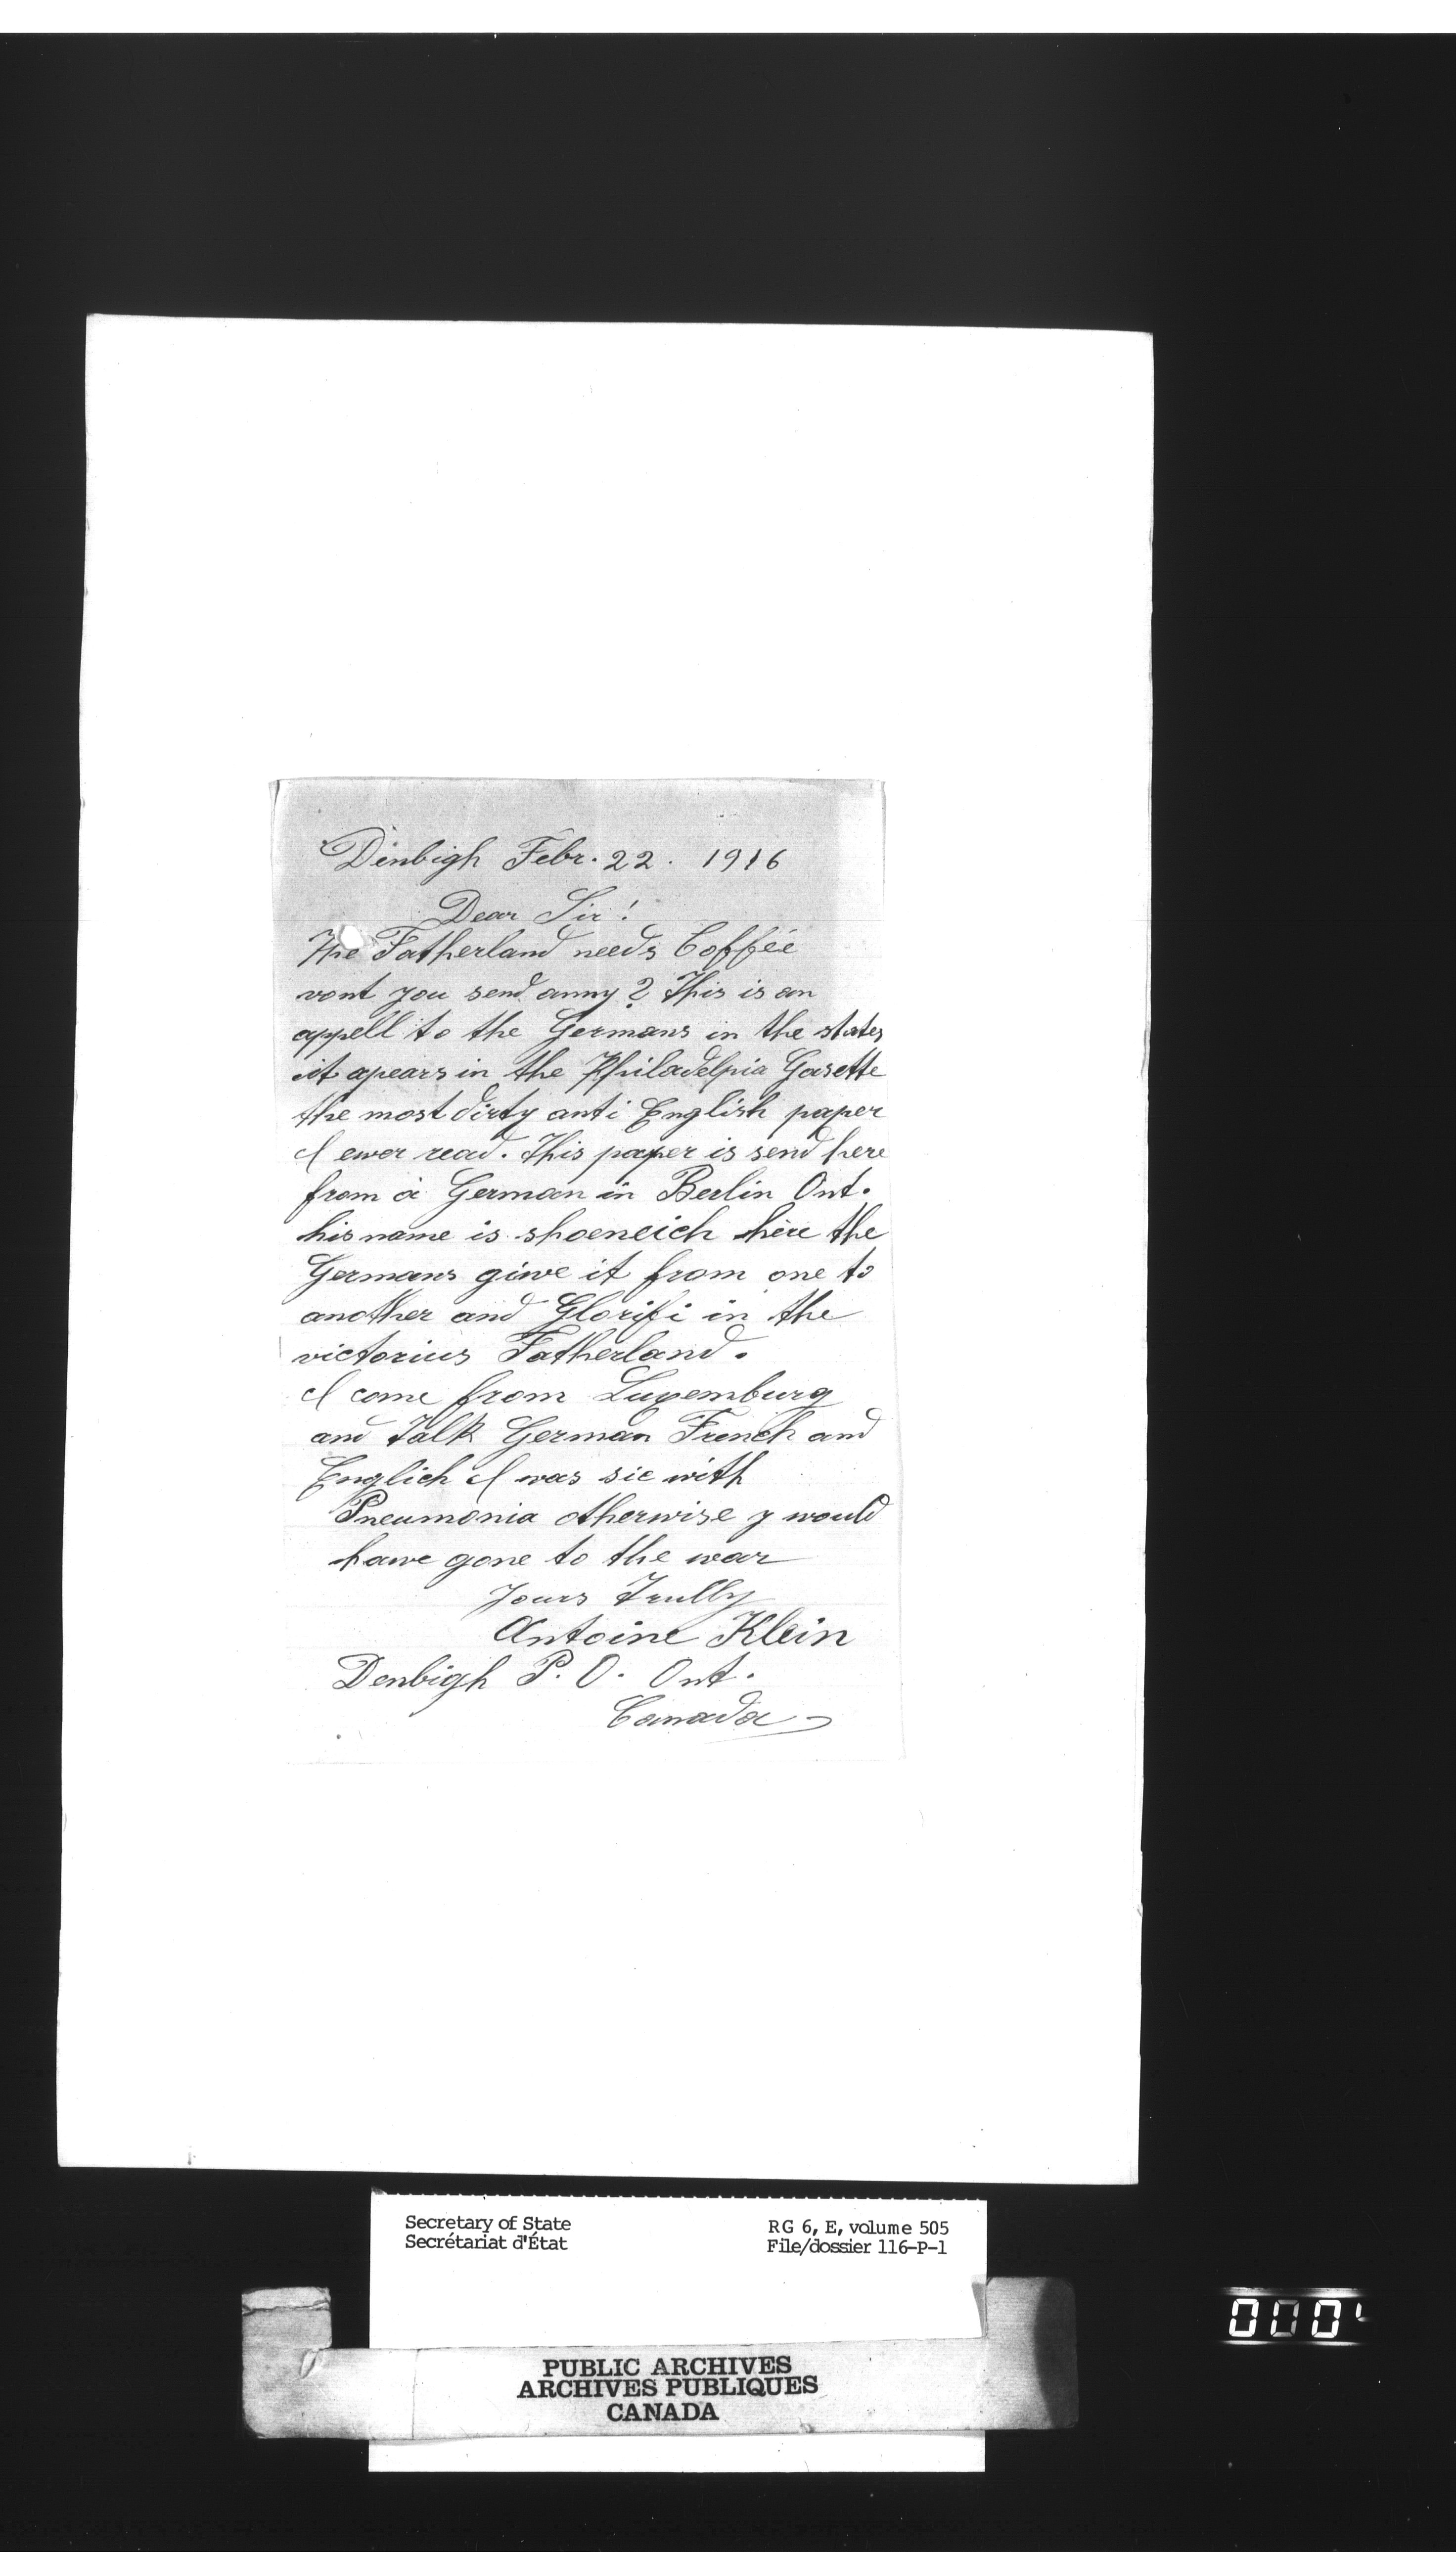 Denbigh Febr. 22. 1916
Dear Sir!
The Fatherland needs Coffee
vont you send anny? This is an
appell to the Germans in the states
it apears in the Philadelpia Gasette
the most dirty anti English paper
I ewer read. This paper is send here
from a German in Berlin Ont.
his name is shoeneich here the
Germans giwe it from one to
another and Glorifi in the
victorius Fatherland.
I come from Luxemburg
and Talk German French and
Englich I was sic with
Pneumonia otherwise y would
hawe gone to the war
Yours Trully
Antoine Klein
Denbigh P. O. Ont.
Canada
Secretary of State
Secrétariat d'État
RG 6, E, volume 505
File/dossier 116-P-1
PUBLIC ARCHIVES
ARCHIVES PUBLIQUES
CANADA
000